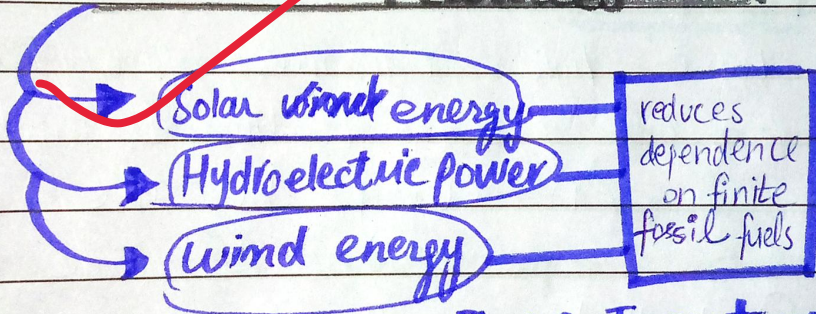 Solar energy
Hydroelectric power
Wind energy
reduces
dependence
on finite
fossil fuels